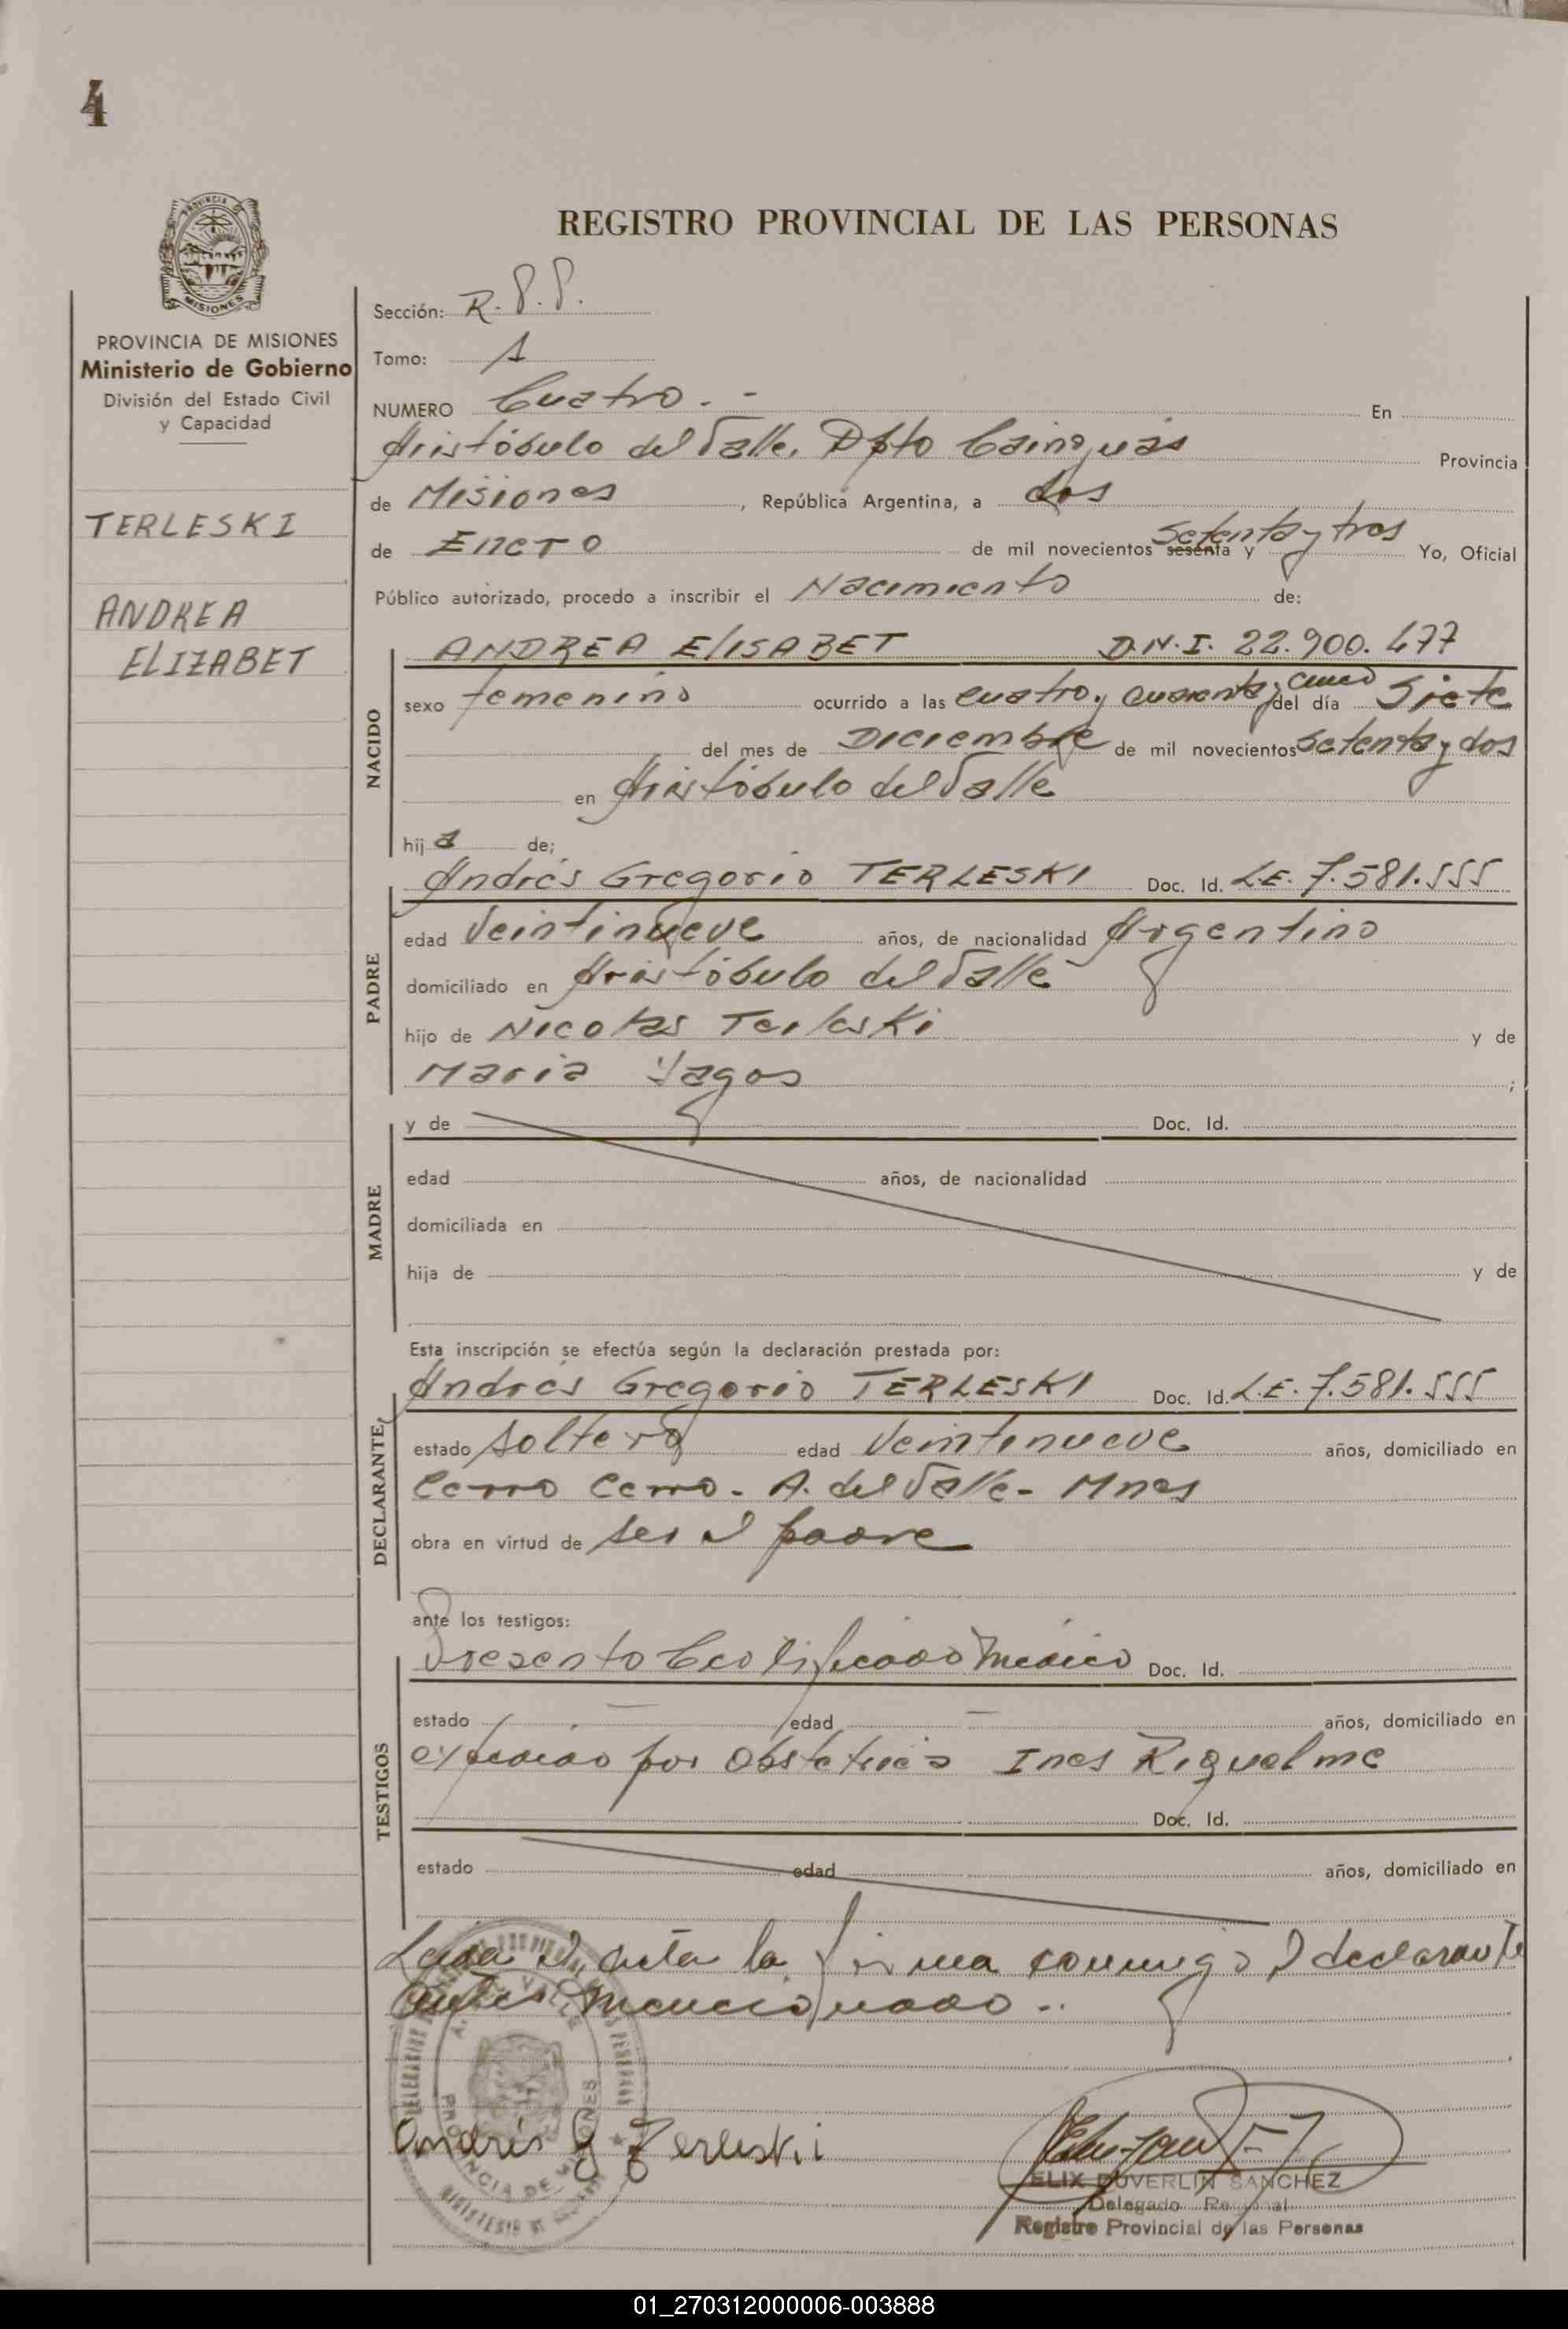 4
PROVINCIA DE MISIONES
Ministerio de Gobierno
División del Estado Civil
y Capacidad
TERLESKI
ANDREA
ELIZABET
REGISTRO PROVINCIAL DE LAS PERSONAS
Sección: R.P.P.
Tomo: 1
NUMERO Cuatro.- En
Aristóbulo del Valle, Dpto Cainguás Provincia
de Misiones, República Argentina, a dos
de Enero de mil novecientos sesenta y Setenta y tres Yo, Oficial
Público autorizado, procedo a inscribir el Nacimiento de:
NACIDO
ANDREA ElISABET D.N.I. 22.900.477
sexo femenino ocurrido a las cuatro y cuarenta y cinco del día Siete
del mes de Diciembre de mil novecientos setenta y dos
en Aristóbulo del Valle
hija de;
PADRE
Andrés Gregorio TERLESKI Doc. Id. L.E. 7.581.555
edad Veintinueve años, de nacionalidad Argentino
domiciliado en Aristóbulo del Valle
hijo de Nicolas Terleski y de
Maria Yagos ;
MADRE
y de Doc. Id.
edad años, de nacionalidad
domiciliada en
hija de y de
Esta inscripción se efectúa según la declaración prestada por:
DECLARANTE
Andrés Gregorio TERLESKI Doc. Id. L.E. 7.581.555
estado soltero edad Veintinueve años, domiciliado en
Cerro Cerro. A. del Valle- Mnes
obra en virtud de ser el padre
ante los testigos:
TESTIGOS
Presento Certificado Médico Doc. Id.
estado edad años, domiciliado en
expedido por Obstetrica Ines Riquelme
Doc. Id.
estado edad años, domiciliado en
Leida el acta la firma conmigo el declarante
antes mencionado..
A. DEL VALLE
PROVINCIA DE MISIONES
Andrés G Terleski
FELIX DUVERLIN SANCHEZ
Delegado Regional
Registro Provincial de las Personas
01_270312000006-003888